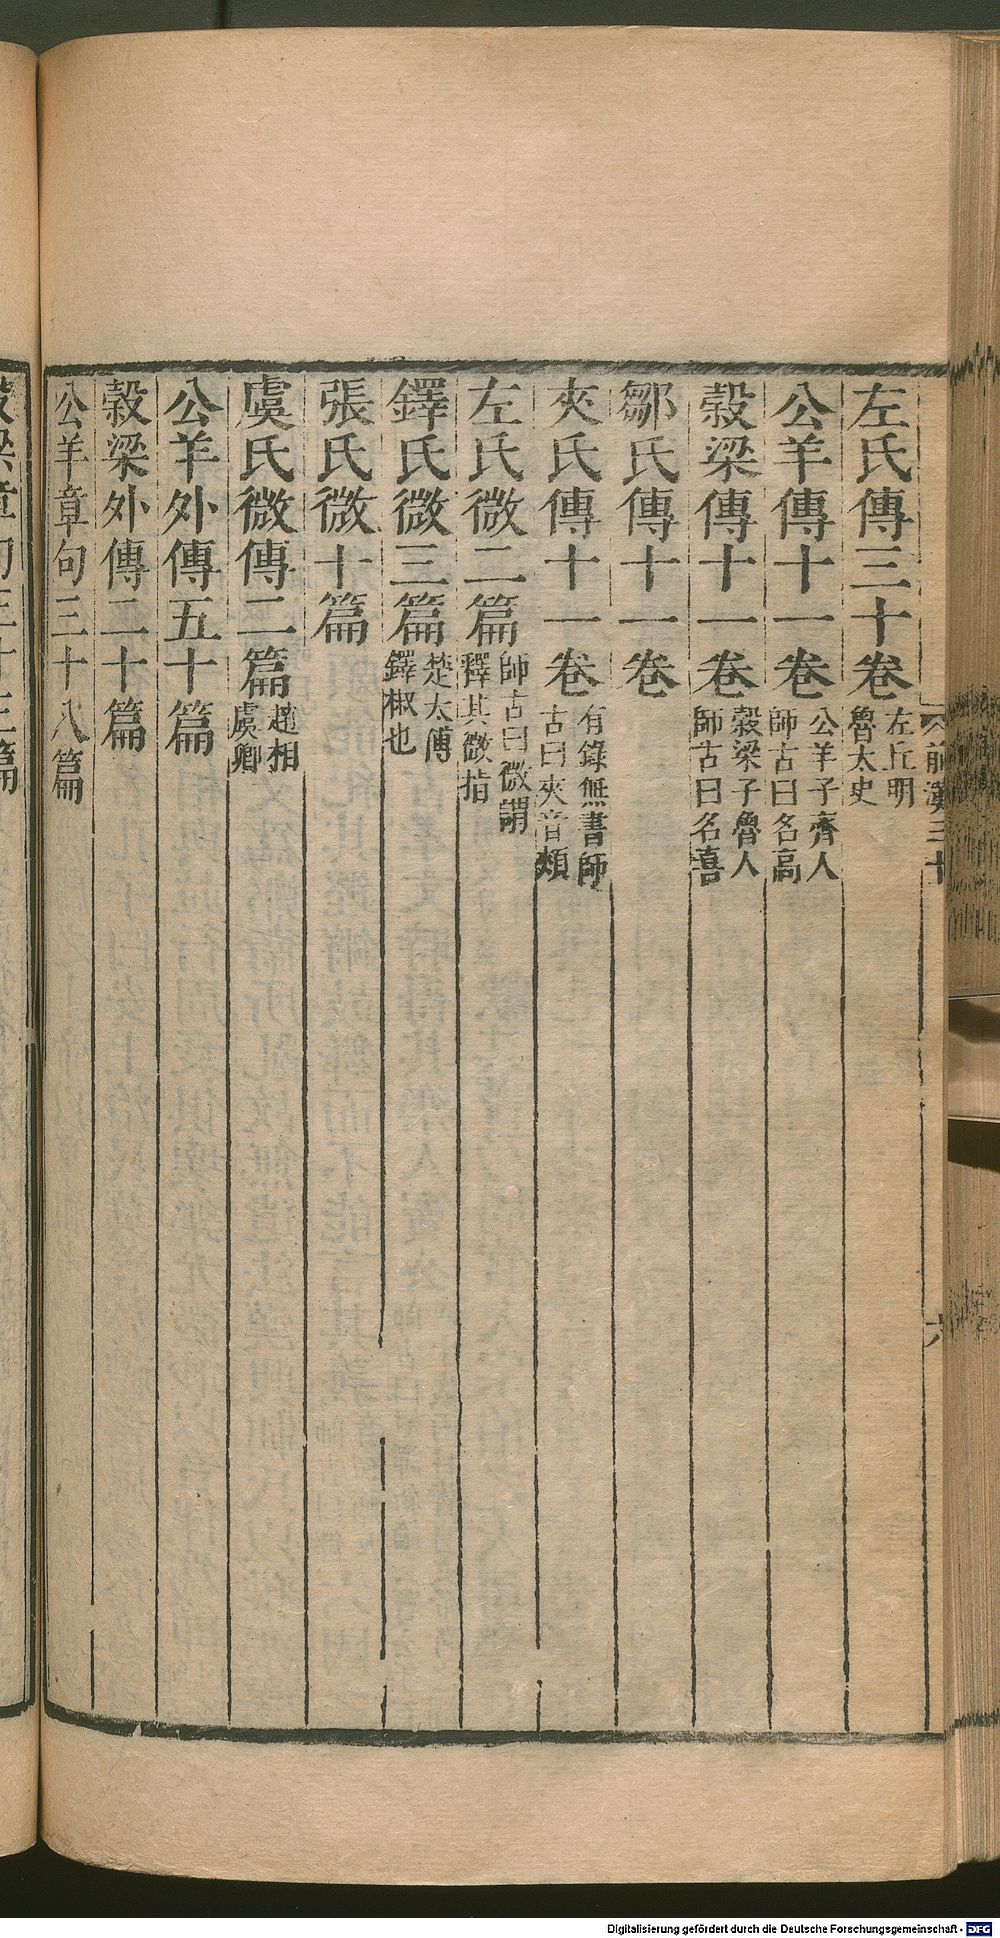 前漢三十
六
左氏傳三十卷 左丘明魯太史
公羊傳十一卷 公羊子齊人師古曰名高
穀梁傳十一卷 穀梁子魯人師古曰名喜
鄒氏傳十一卷
夾氏傳十一卷 有錄無書師古曰夾音頰
左氏微二篇 師古曰微謂釋其微指
鐸氏微三篇 楚太傅鐸椒也
張氏微十篇
虞氏微傳二篇 趙相虞卿
公羊外傳五十篇
穀梁外傳二十篇
公羊章句三十八篇
穀梁章句三十三篇
Digitalisierung gefördert durch die Deutsche Forschungsgemeinschaft - DFG